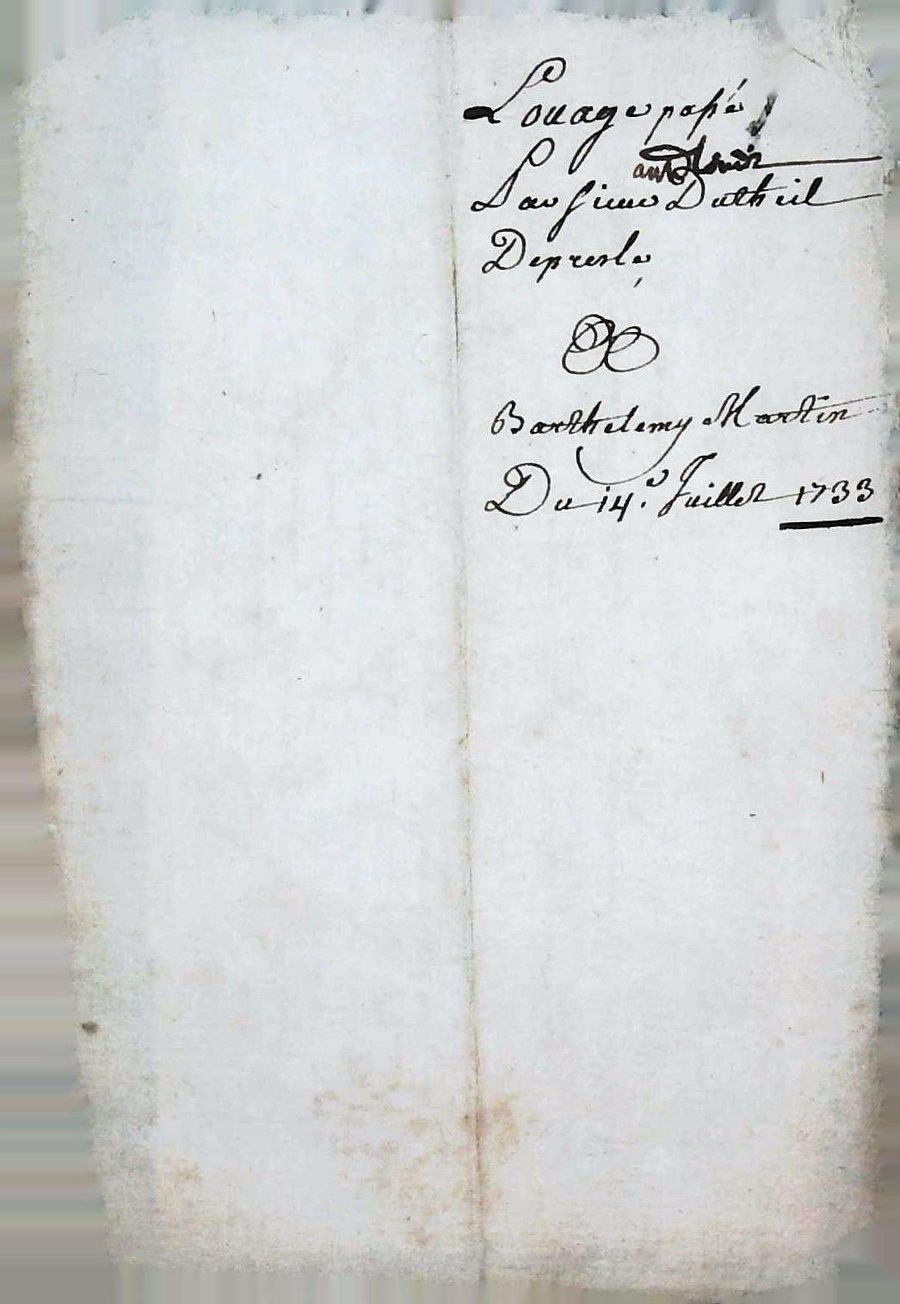 Louage passé
Par sieur Dutheil
Depresle
Barthelemy Martin
Du 14.e Juillet 1733